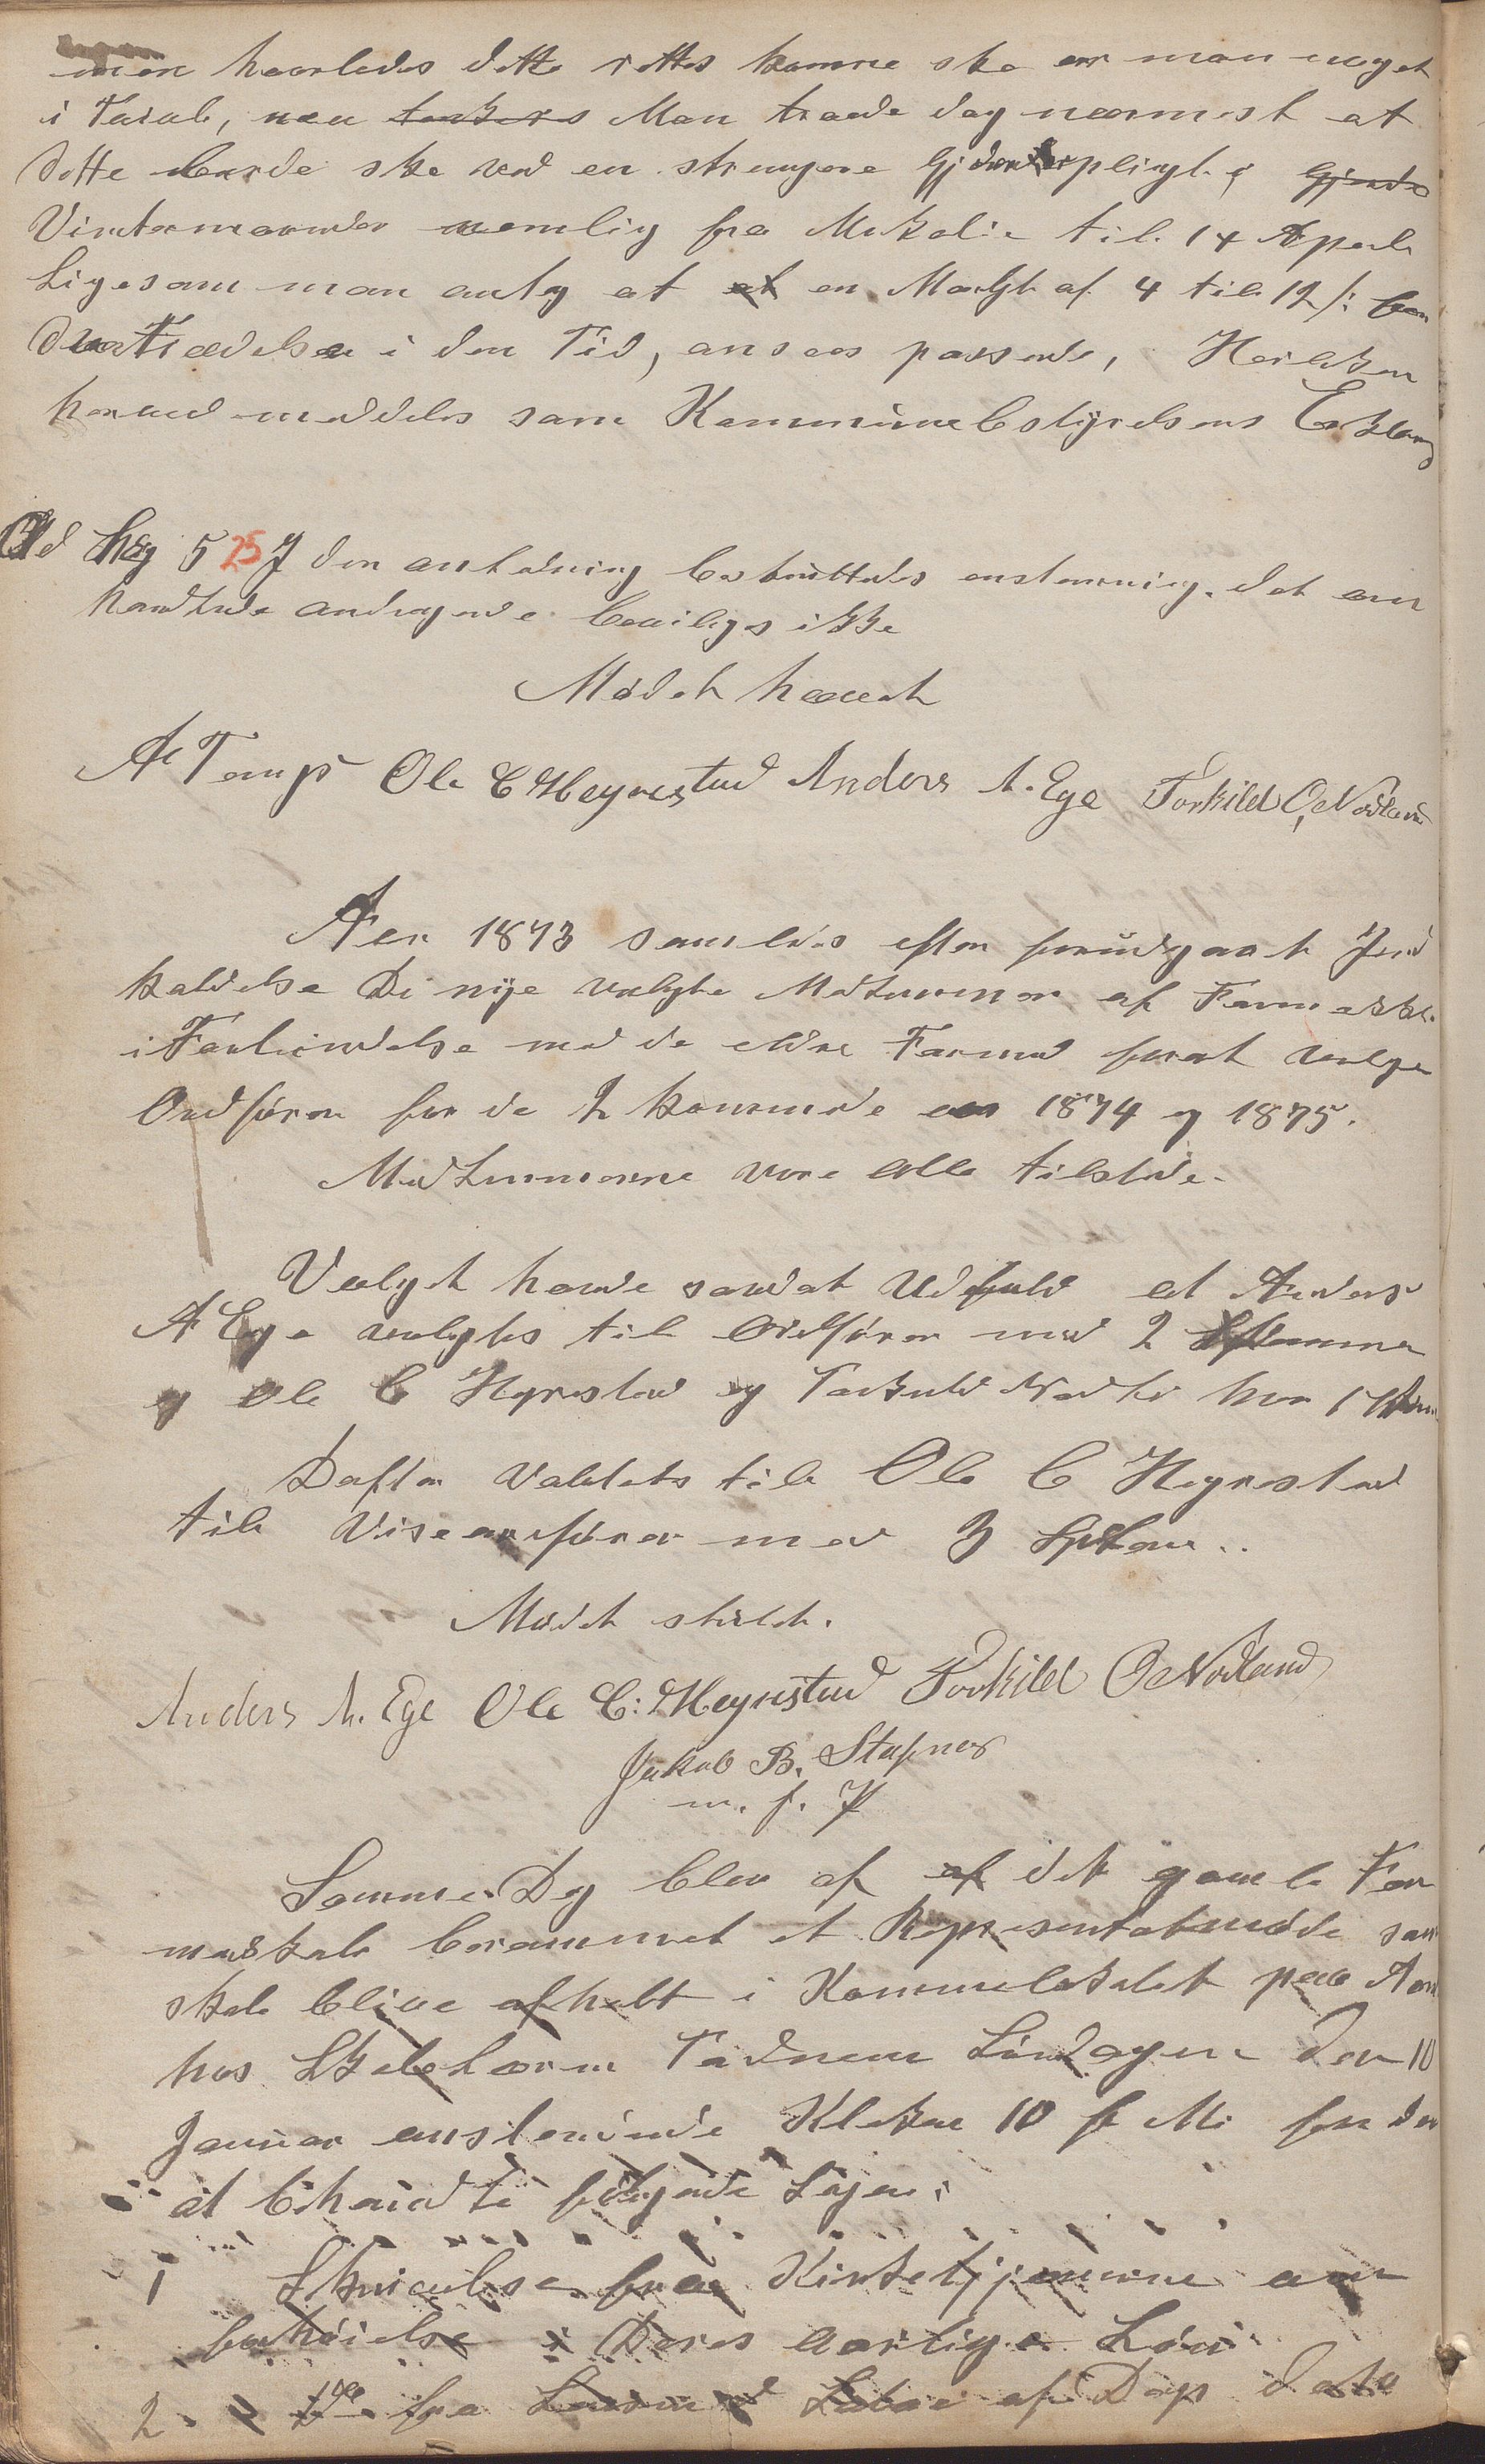 men hvorledes dette rettes kunne ske er man meget
i Tvivl, men Man troede dog nærmest at
dette burde ske ved en strengere Gjæterpligt i
Vintermaaneder nemlig fra Mikalie til 14 April
Ligesom man antog at en Mulgt af 4 til 12 ß
Overtrædelse i den Tid, ansees passende,
herved meddeles som Kommunebestyrelsens Erklæring
Sag 5 25 I den anledning besluttedes enstemmig, det om
handlede andragende beviliges ikke
Mødet hævet
Ole C Høyrestad Anders A. Ege Torkild O, Nodland
Aar 1873 samledes efter forudgaaet Ind
kaldelse De nye valgte Medlemmer af Formandsk.
i Forbindelse med de eldre Formænd forat vælge
Ordfører for de 2 kommende aar 1874 og 1875.
Medlemmerne vare alle tilstede.
Valget havde saadat Udfald at Anders
A Ege valgtes til Ordfører med 2 Stemmer
og Ole C Høyrestad og Torkild Nodland hver 1 Stem
Derfter valgtes til Ole C Høyrestad
til Viseordfører med 3 Stem..
Mødet sluttet.
Anders A. Ege Ole C: Høyrestad Torkild O Nodland
Jakob B. Stapnes
m. f. P
Samme Dag blev af af det gamle For
mandskab berammet et Representatmøde som
skal blive afholdt i Kommunelokalet paa
hos Skolelærer Tødnem Løverdagen den 10
Januar anstundende Klokken 10 f M. for der
at behandle følgende Sager:
1 Skrivelse fra Kirketjenerne om
forhøielse i Deres aarlige Løn
2. Do fra af Dags Dato